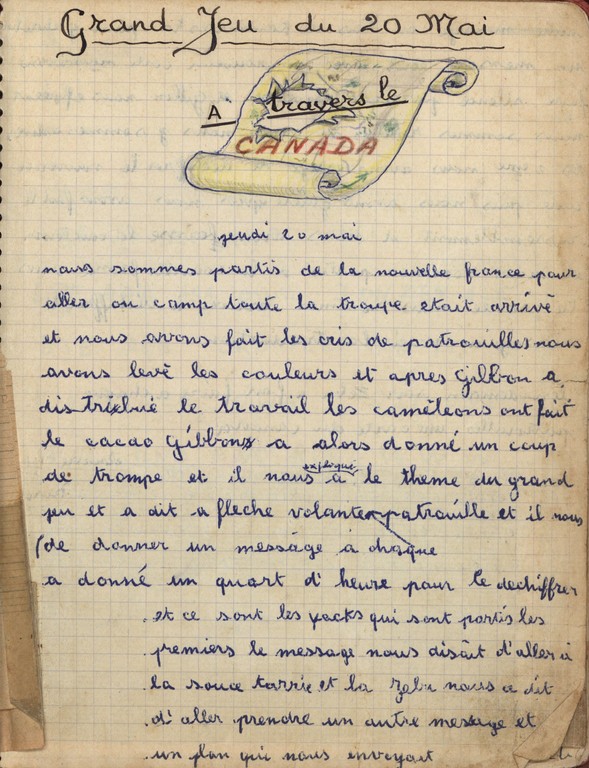 Grand Jeu du 20 Mai
A travers le
CANADA
jeudi 20 mai
nous sommes partis de la nouvelle france pour
aller au camp toute la troupe etait arrivé
et nous avons fait les cris de patrouilles nous
avons levé les couleurs et apres Gibbon a
distribué le travail les caméleons ont fait
le cacao Gibbon a alors donné un coup
de trompe et il nous a expliqué le theme du grand
jeu et a dit a fleche volante patrouille et il nous
(de donner un message a chaque
a donné un quart d'heure pour le dechiffrer
et ce sont les yacks qui sont partis les
premiers le message nous disait d'aller à
la souce tarrie et la Zebu nous a dit
d'aller prendre un autre message et
un plan qui nous envoyait